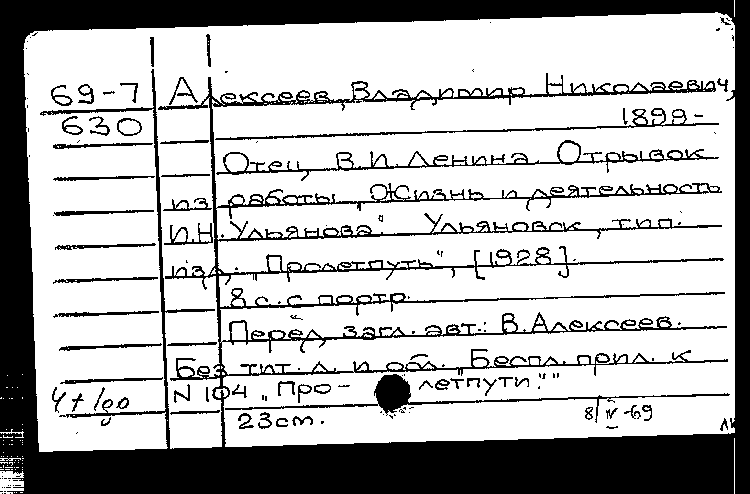 69-7 Алексеев, Владимир Николаевич,
630 1899-
Отец В.И. Ленина. Отрывок
из работы „Жизнь и деятельность
И.Н. Ульянова". Ульяновск, тип.
изд. „Пролетпуть", [1928].
8 с. с портр.
Перед загл. авт.: В. Алексеев.
Без тит. л. и обл. „Беспл. прил. к
N 104 „Про- летпути.""
23 см. 8/IV-69